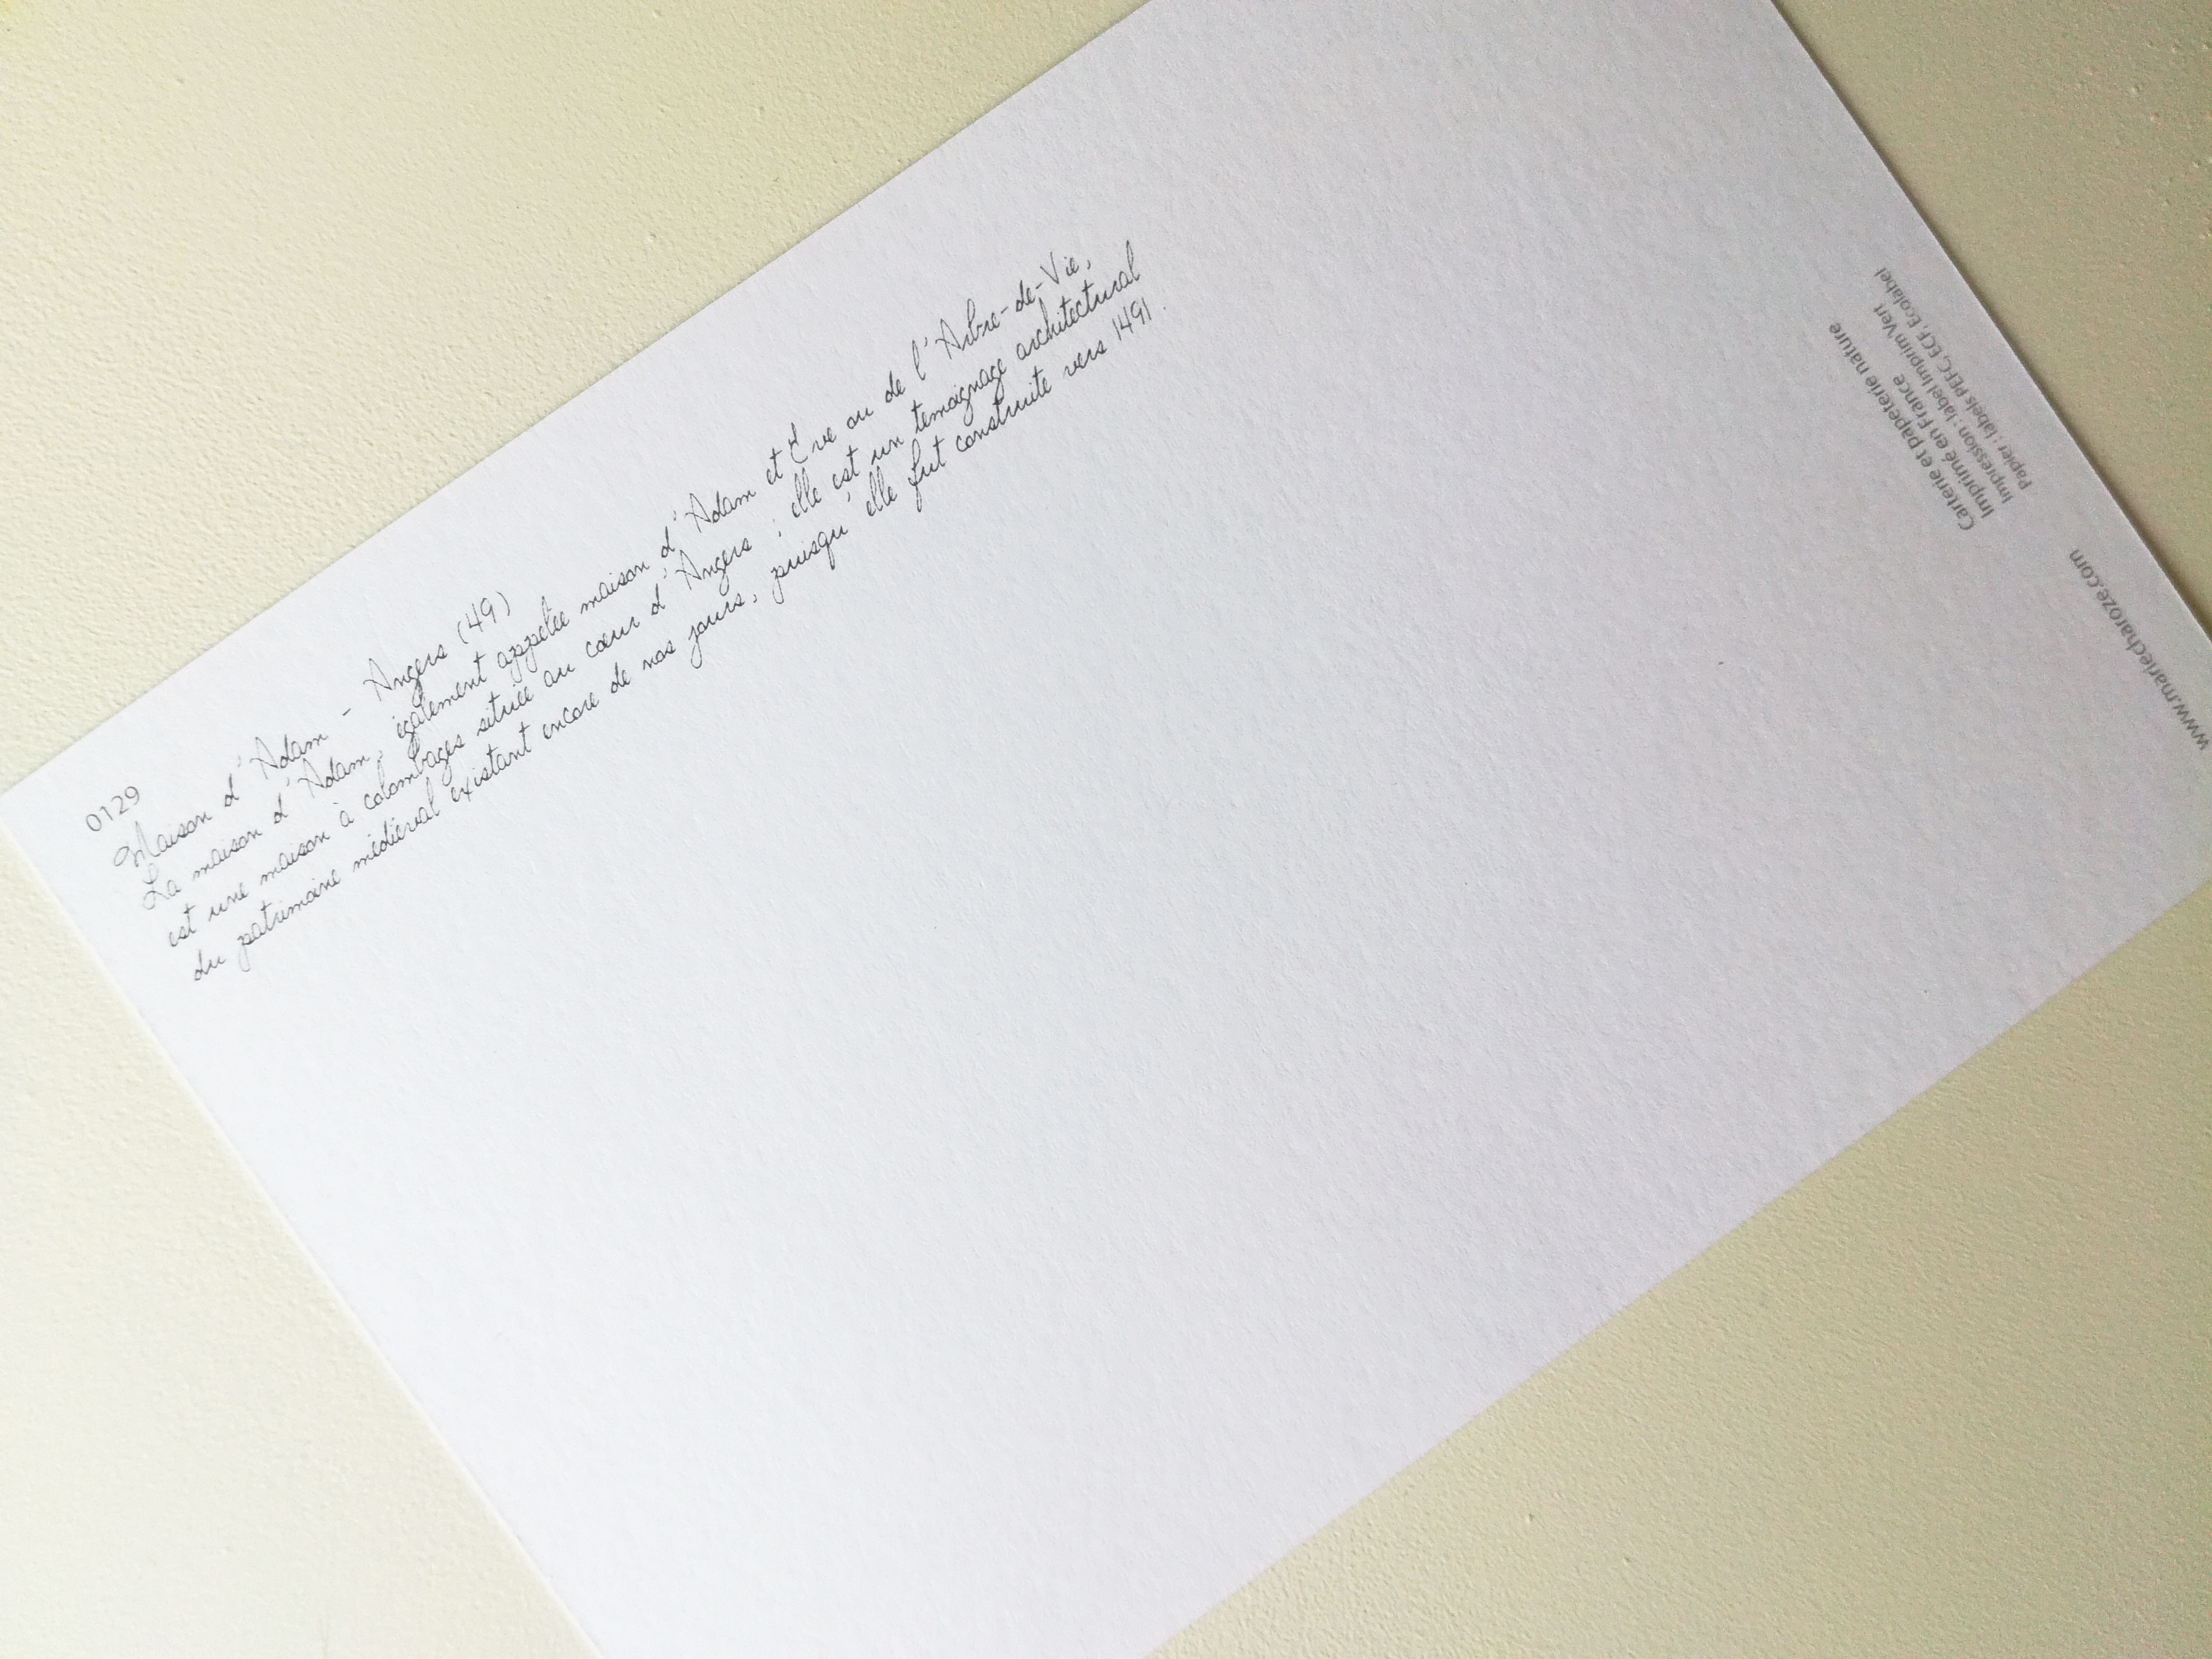 0129
Maison d'Adam - Angers (49)
La maison d'Adam, également appelée maison d'Adam et Ève ou de l'Arbre-de-Vie,
est une maison à colombages située au cœur d'Angers ; elle est un témoignage architectural
du patrimoine médiéval existant encore de nos jours, puisqu'elle fut construite vers 1491.
Carterie et papeterie nature
Imprimé en France
Impression : label Imprim'Vert
Papier : labels PEFC, ECF, Ecolabel
www.mariecharoze.com